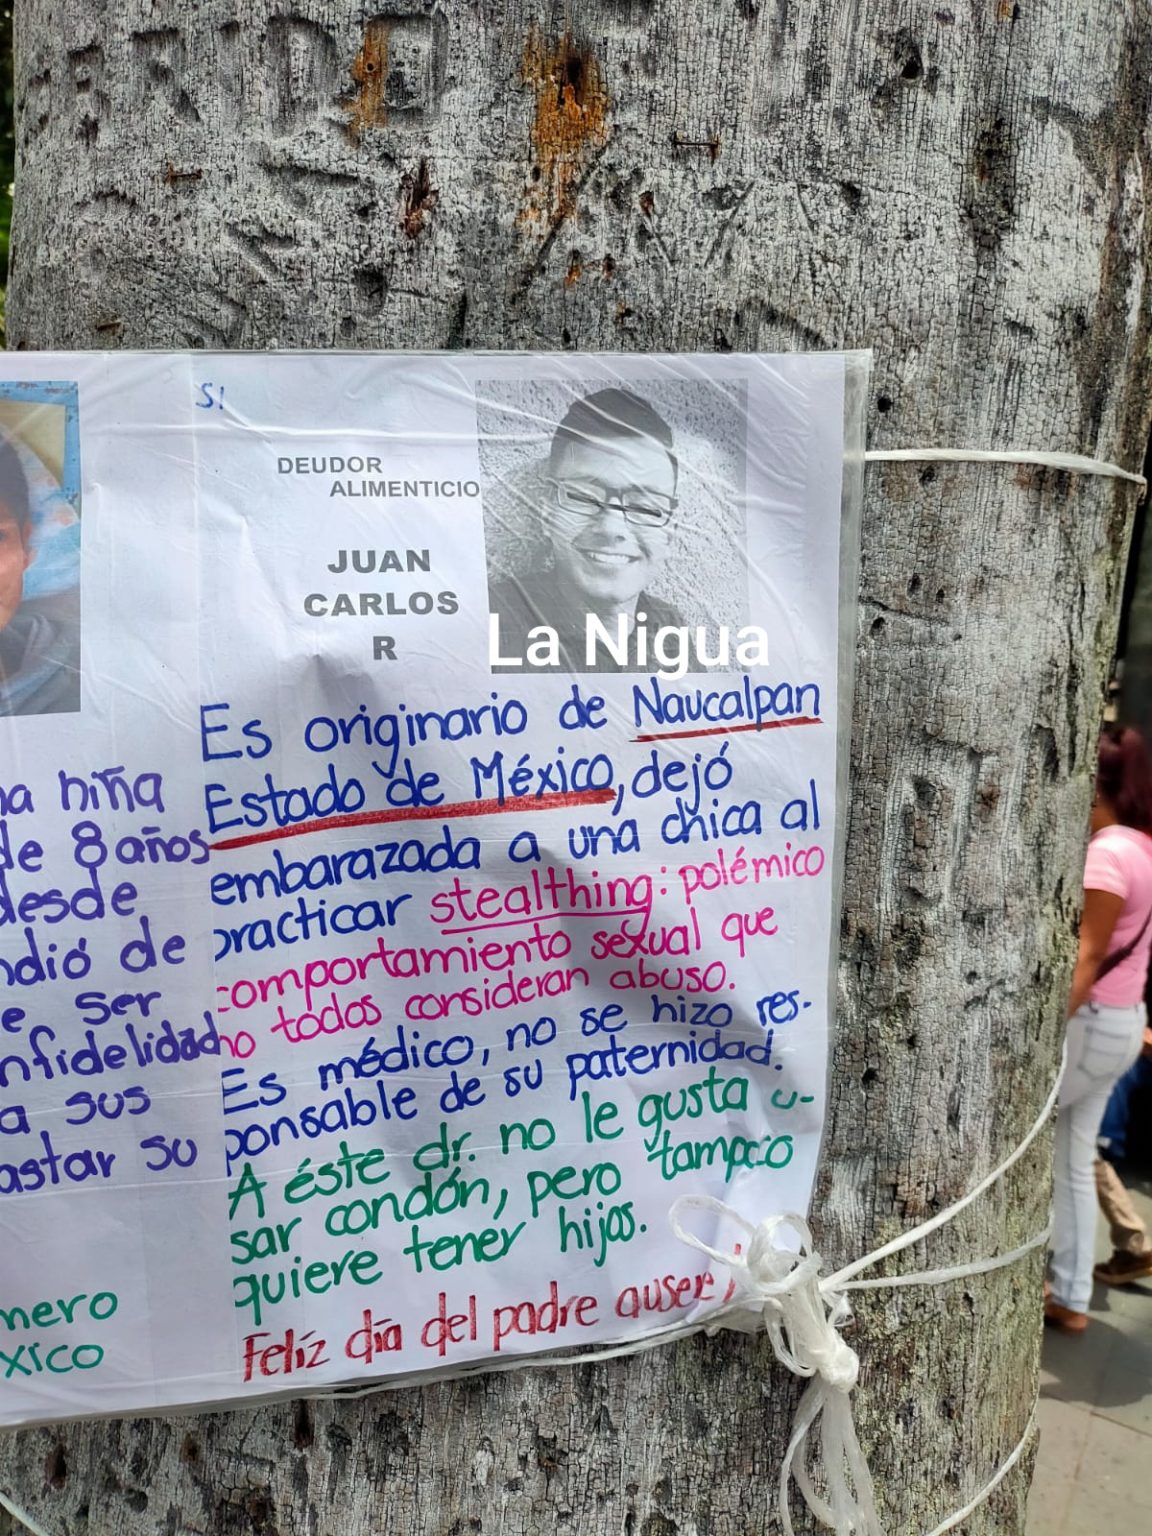 SI
DEUDOR
ALIMENTICIO
JUAN
CARLOS
R
La Nigua
Es originario de Naucalpan
Estado de México, dejó
embarazada a una chica al
practicar stealthing: polémico
comportamiento sexual que
no todos consideran abuso.
Es médico, no se hizo res-
ponsable de su paternidad.
A éste dr. no le gusta u-
sar condón, pero tampoco
quiere tener hijos.
Feliz día del padre
niña
de 8 años
desde
de
ser
infidelidad
a sus
su